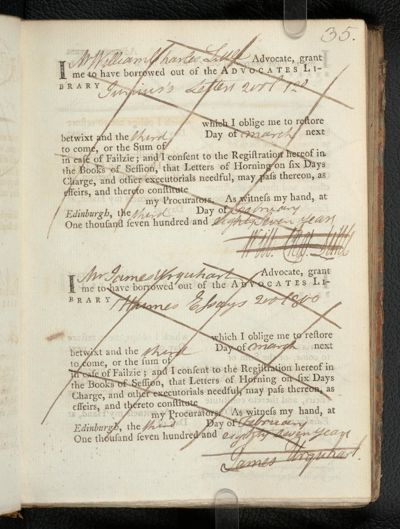 35.
I Mr William Charles Little Advocate, grant
me to have borrowed out of the ADVOCATES LI-
BRARY Junius's Letters 2 vol
which I oblige me to reſtore
betwixt and the third Day of march next
to come, or the Sum of
in caſe of Failzie; and I conſent to the Regiſtration hereof in
the Books of Seſſion, that Letters of Horning on ſix Days
Charge, and other executorials needful, may paſs thereon, as
effeirs, and thereto conſtitute
my Procurators. As witneſs my hand, at
Edinburgh, the third Day of February
One thouſand ſeven hundred and eighty seven years
Will. Chas. Little
I Mr James Urquhart Advocate, grant
me to have borrowed out of the ADVOCATES LI-
BRARY Humes Essays 2 vol 800
which I oblige me to reſtore
betwixt and the third Day of march next
to come, or the ſum of
in caſe of Failzie; and I conſent to the Regiſtration hereof in
the Books of Seſſion, that Letters of Horning on ſix Days
Charge, and other executorials needful, may paſs thereon, as
effeirs, and thereto conſtitute
my Procurators. As witneſs my hand, at
Edinburgh, the third Day of February
One thouſand ſeven hundred and eighty seven years
James Urquhart.